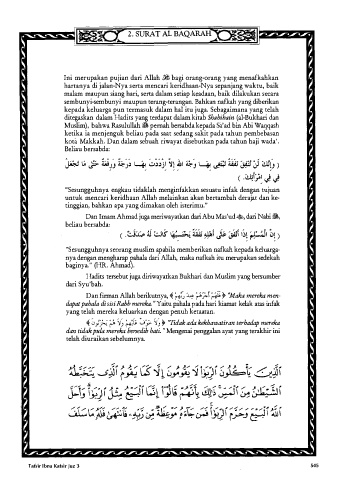 2. SURAT AL BAQARAH
Ini merupakan pujian dari Allah ﷻ bagi orang-orang yang menafkahkan
hartanya di jalan-Nya serta mencari keridhaan-Nya sepanjang waktu, baik
malam maupun siang hari, serta dalam setiap keadaan, baik dilakukan secara
sembunyi-sembunyi maupun terang-terangan. Bahkan nafkah yang diberikan
kepada keluarga pun termasuk dalam hal itu juga. Sebagaimana yang telah
ditegaskan dalam Hadits yang terdapat dalam kitab Shahihain (al-Bukhari dan
Muslim), bahwa Rasulullah ﷺ pernah bersabda kepada Sa'ad bin Abi Waqqash
ketika ia menjenguk beliau pada saat sedang sakit pada tahun pembebasan
kota Makkah. Dan dalam sebuah riwayat disebutkan pada tahun haji wada'.
Beliau bersabda:
( وَإِنَّكَ لَنْ تُنْفِقَ نَفَقَةً تَبْتَغِي بِهَا وَجْهَ اللهِ إِلاَّ ازْدَدْتَ بِهَا دَرَجَةً وَرِفْعَةً حَتَّى مَا تَجْعَلُ
فِي فِي امْرَأَتِكَ. )
"Sesungguhnya engkau tidaklah menginfakkan sesuatu infak dengan tujuan
untuk mencari keridhaan Allah melainkan akan bertambah derajat dan ke-
tinggian, bahkan apa yang dimakan oleh isterimu."
Dan Imam Ahmad juga meriwayatkan dari Abu Mas'ud, dari Nabi ﷺ,
beliau bersabda:
( إِنَّ الْمُسْلِمَ إِذَا أَنْفَقَ عَلَى أَهْلِهِ نَفَقَةً يَحْتَسِبُهَا كَانَتْ لَهُ صَدَقَةً. )
"Sesungguhnya seorang muslim apabila memberikan nafkah kepada keluarga-
nya dengan mengharap pahala dari Allah, maka nafkah itu merupakan sedekah
baginya." (HR. Ahmad).
Hadits tersebut juga diriwayatkan Bukhari dan Muslim yang bersumber
dari Syu'bah.
Dan firman Allah berikutnya, ﴿ فَلَهُمْ أَجْرُهُمْ عِندَ رَبِّهِمْ ﴾ "Maka mereka men-
dapat pahala di sisi Rabb mereka." Yaitu pahala pada hari kiamat kelak atas infak
yang telah mereka keluarkan dengan penuh ketaatan.
﴿ وَلَا خَوْفٌ عَلَيْهِمْ وَلَا هُمْ يَحْزَنُونَ ﴾ "Tidak ada kekhawatiran terhadap mereka
dan tidak pula mereka bersedih hati." Mengenai penggalan ayat yang terakhir ini
telah diuraikan sebelumnya.
الَّذِينَ يَأْكُلُونَ الرِّبَوٰا۟ لَا يَقُومُونَ إِلَّا كَمَا يَقُومُ الَّذِى يَتَخَبَّطُهُ
الشَّيْطَٰنُ مِنَ الْمَسِّ ذَٰلِكَ بِأَنَّهُمْ قَالُوٓا۟ إِنَّمَا الْبَيْعُ مِثْلُ الرِّبَوٰا۟ وَأَحَلَّ
اللَّهُ الْبَيْعَ وَحَرَّمَ الرِّبَوٰا۟ فَمَن جَآءَهُۥ مَوْعِظَةٌ مِّن رَّبِّهِۦ فَانتَهَىٰ فَلَهُۥ مَا سَلَفَ
Tafsir Ibnu Katsir Juz 3
545